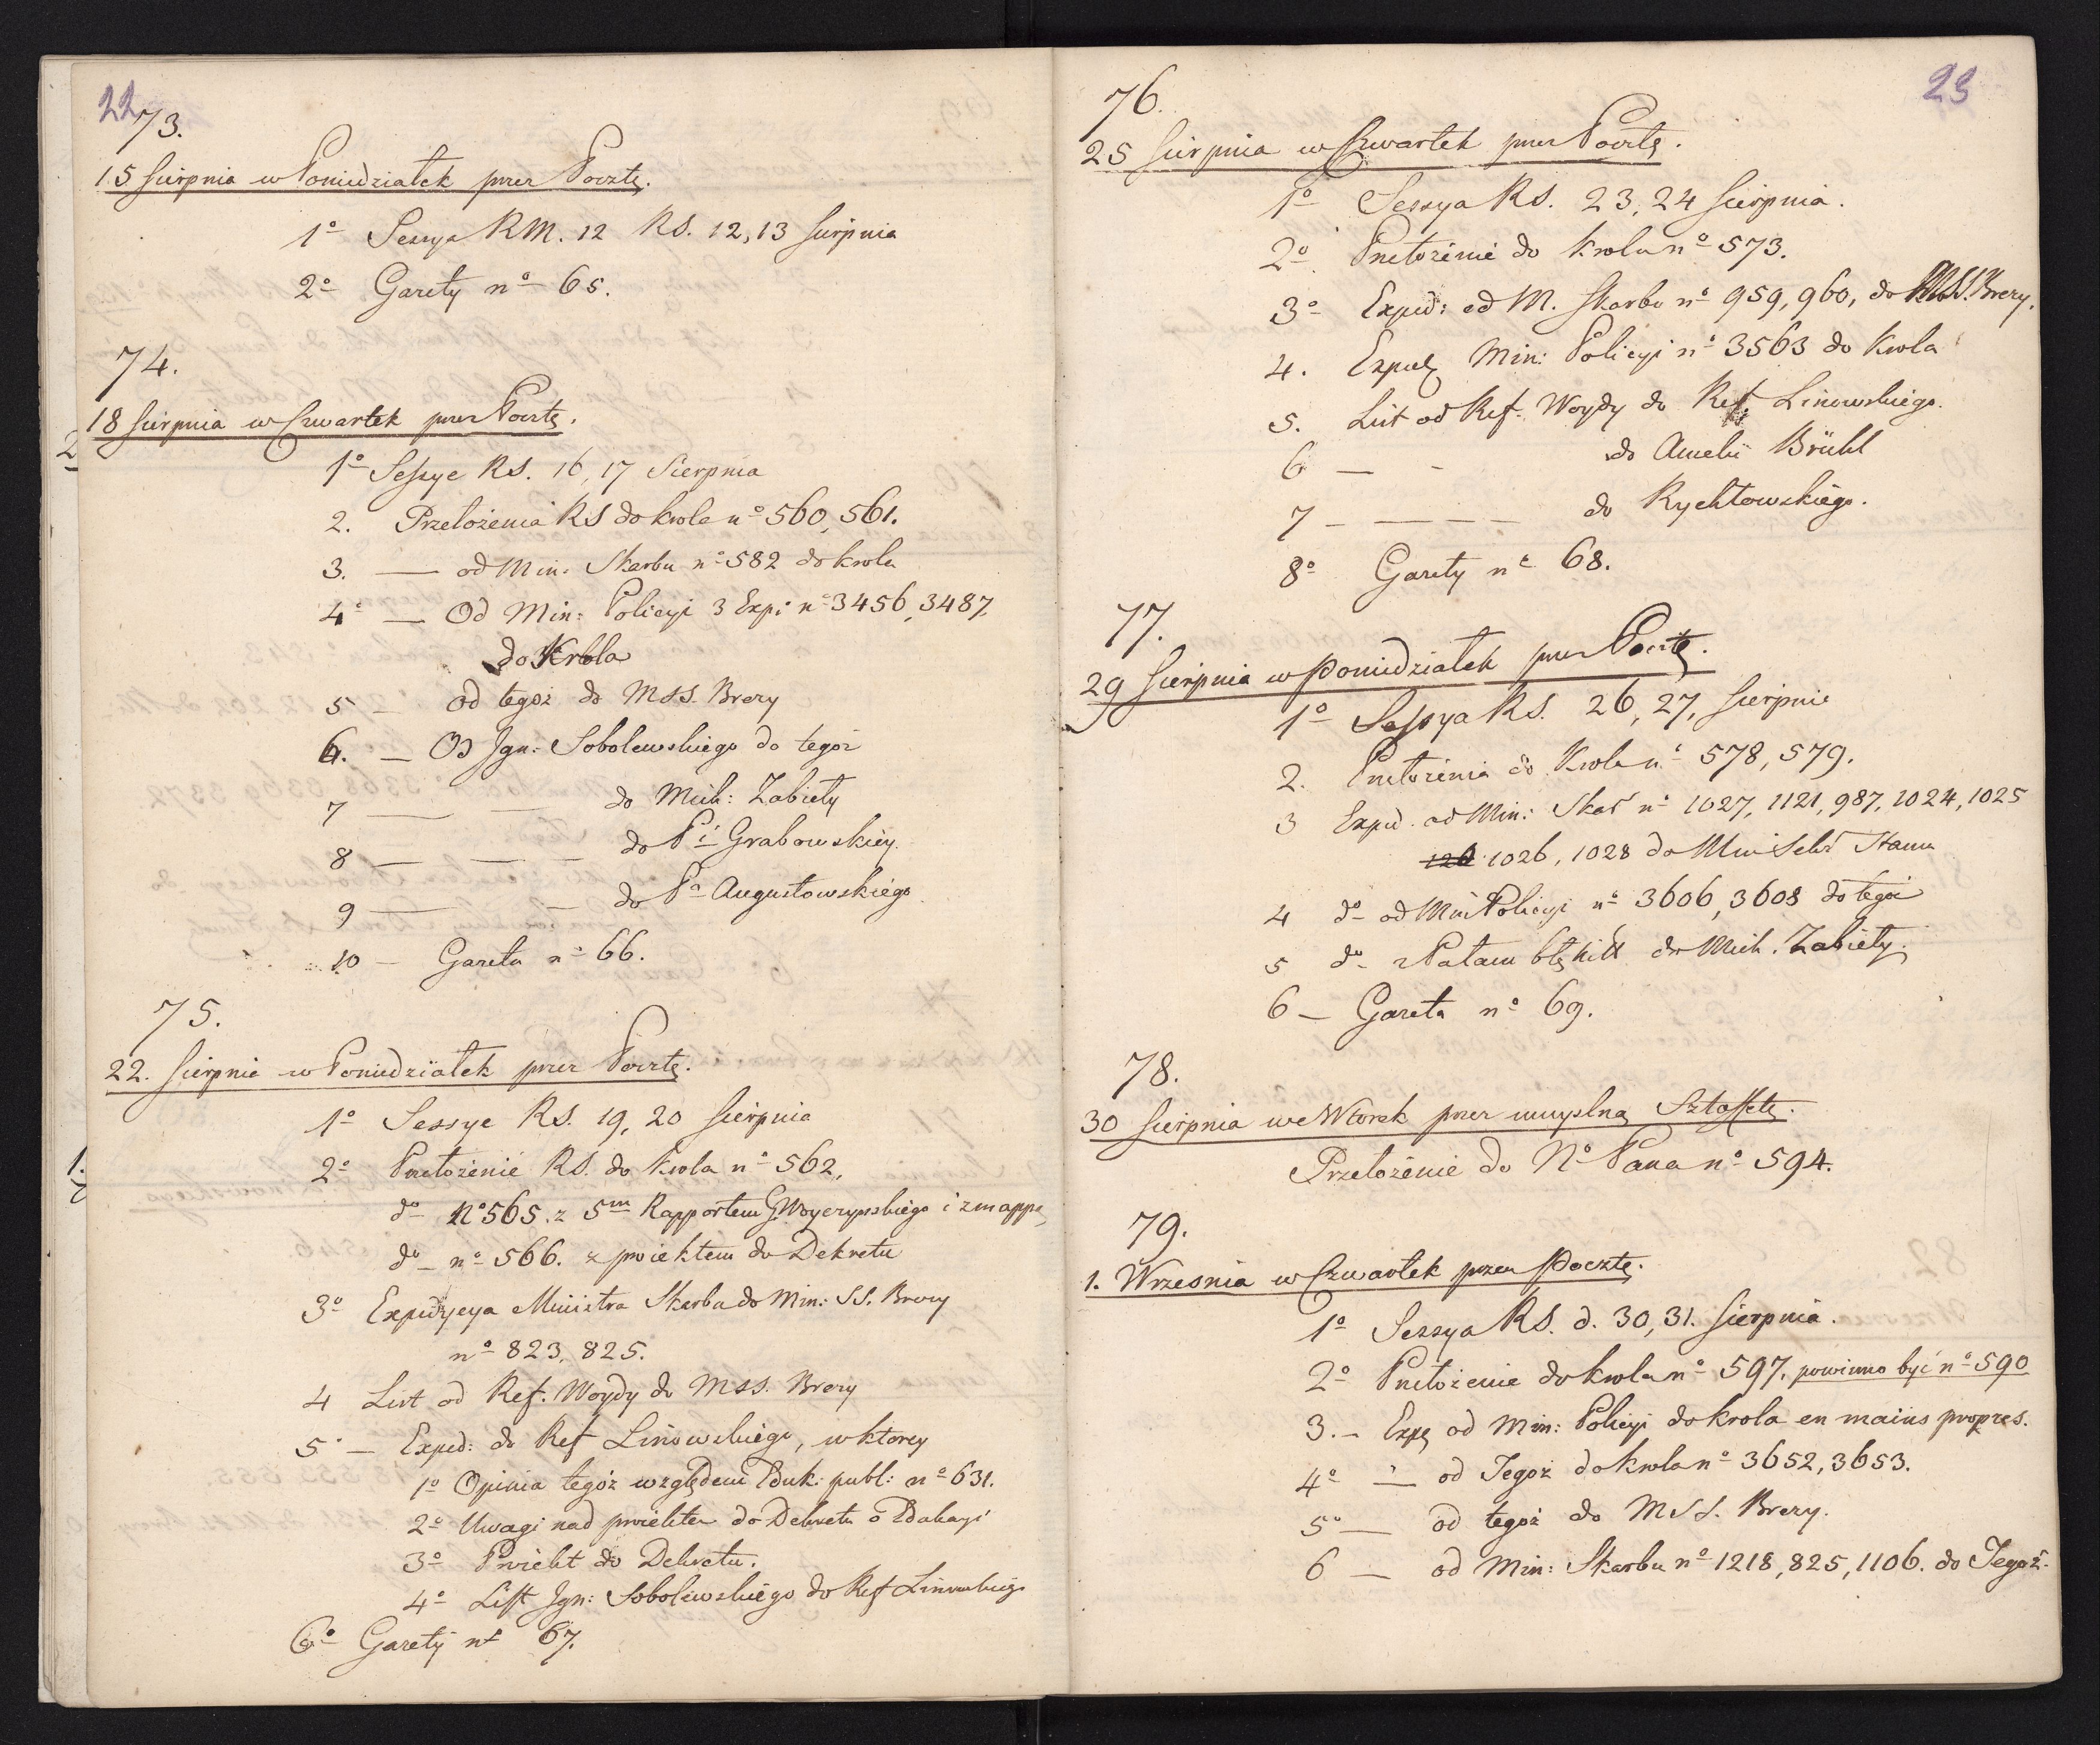 22
73.
15 Sierpnia w Poniedziałek przez Pocztę.
1º Sessya RM. 12 RS. 12, 13 Sierpnia
2º Gazety nº 65.
74.
18 Sierpnia w Czwartek przez Pocztę.
1º Sessye RS. 16, 17 Sierpnia
2. Przełożenia RS do krola nº 560, 561.
3. — od Min: Skarbu nº 582 do krola
4º — Od Min: Policyi 3 Exp: nº 3456, 3487,
do Krola
5 — od tegoż do MSS. Brezy
6. — Od Ign: Sobolewskiego do tegoż
7 — — do Mich: Zabieły
8 — — — do Pⁱ Grabowskiey
9 — — do Pª Augustowskiego
10 — Gazeta nº 66.
75.
22. Sierpnia w Poniedziałek przez Pocztę.
1º Sessye RS. 19, 20 Sierpnia
2º Przełożenie RS. do Krola nº 562,
dº Nº 565. z 5m Rapportem G. Woyczynskiego i z mappą
dº — nº 566. z proiektem do Dekretu
3º Expedycya Ministra Skarbu do Min: SS. Brezy
nº 823, 825.
4 List od Ref. Woydy do MSS. Brezy
5º — Exped: do Ref Linowskiego, w ktorey
1º Opinia tegoż względem Eduk: publ: nº 631.
2º Uwagi nad proiektem do Dekretu o Edukacyi
3º Proiekt do Dekretu.
4º List Ign: Sobolewskiego do Ref Linowskiego
6º Gazety nº 67.
23
76.
25 Sierpnia w Czwartek przez Pocztę.
1º Sessya RS. 23, 24 Sierpnia.
2º Przełożenie do krola nº 573.
3º Exped: od M. Skarbu nº 959, 960, do MSS. Brezy.
4. Exped Min: Policyi nº 3563 do Krola
5. List od Ref. Woydy do Ref. Linowskiego.
6 — - do Amelii Brühl
7 — — — — do Rychłowskiego.
8º Gazety nº 68.
77.
29 Sierpnia w Poniedziałek przez Pocztę.
1º Sessya RS. 26, 27, Sierpnia
2. Przełożenia do Krola nº 578, 579.
3 Exped. od Min: Skar nº 1027, 1121, 987, 1024, 1025
120 1026, 1028 do Min Sekr Stanu
4 dº od Min Policyi nº 3606, 3608 do tegoż
5 dº do Mich. Zabiełły.
6 — Gazeta nº 69.
78.
30 Sierpnia we Wtorek przez umyslną Sztafetę.
Przełożenie do Nº Pana nº 594.
79.
1. Wrzesnia w Czwartek przez Pocztę.
1º Sessya RS. d. 30, 31. Sierpnia.
2º Przełożenie do krola nº 597, powinno być nº 590
3. — Exp od Min: Policyi do krola en mains propres.
4º — od Tegoż do krola nº 3652, 3653.
5º — od tegoż do MSS. Brezy.
6 — od Min: Skarbu nº 1218, 825, 1106. do Tegoż.